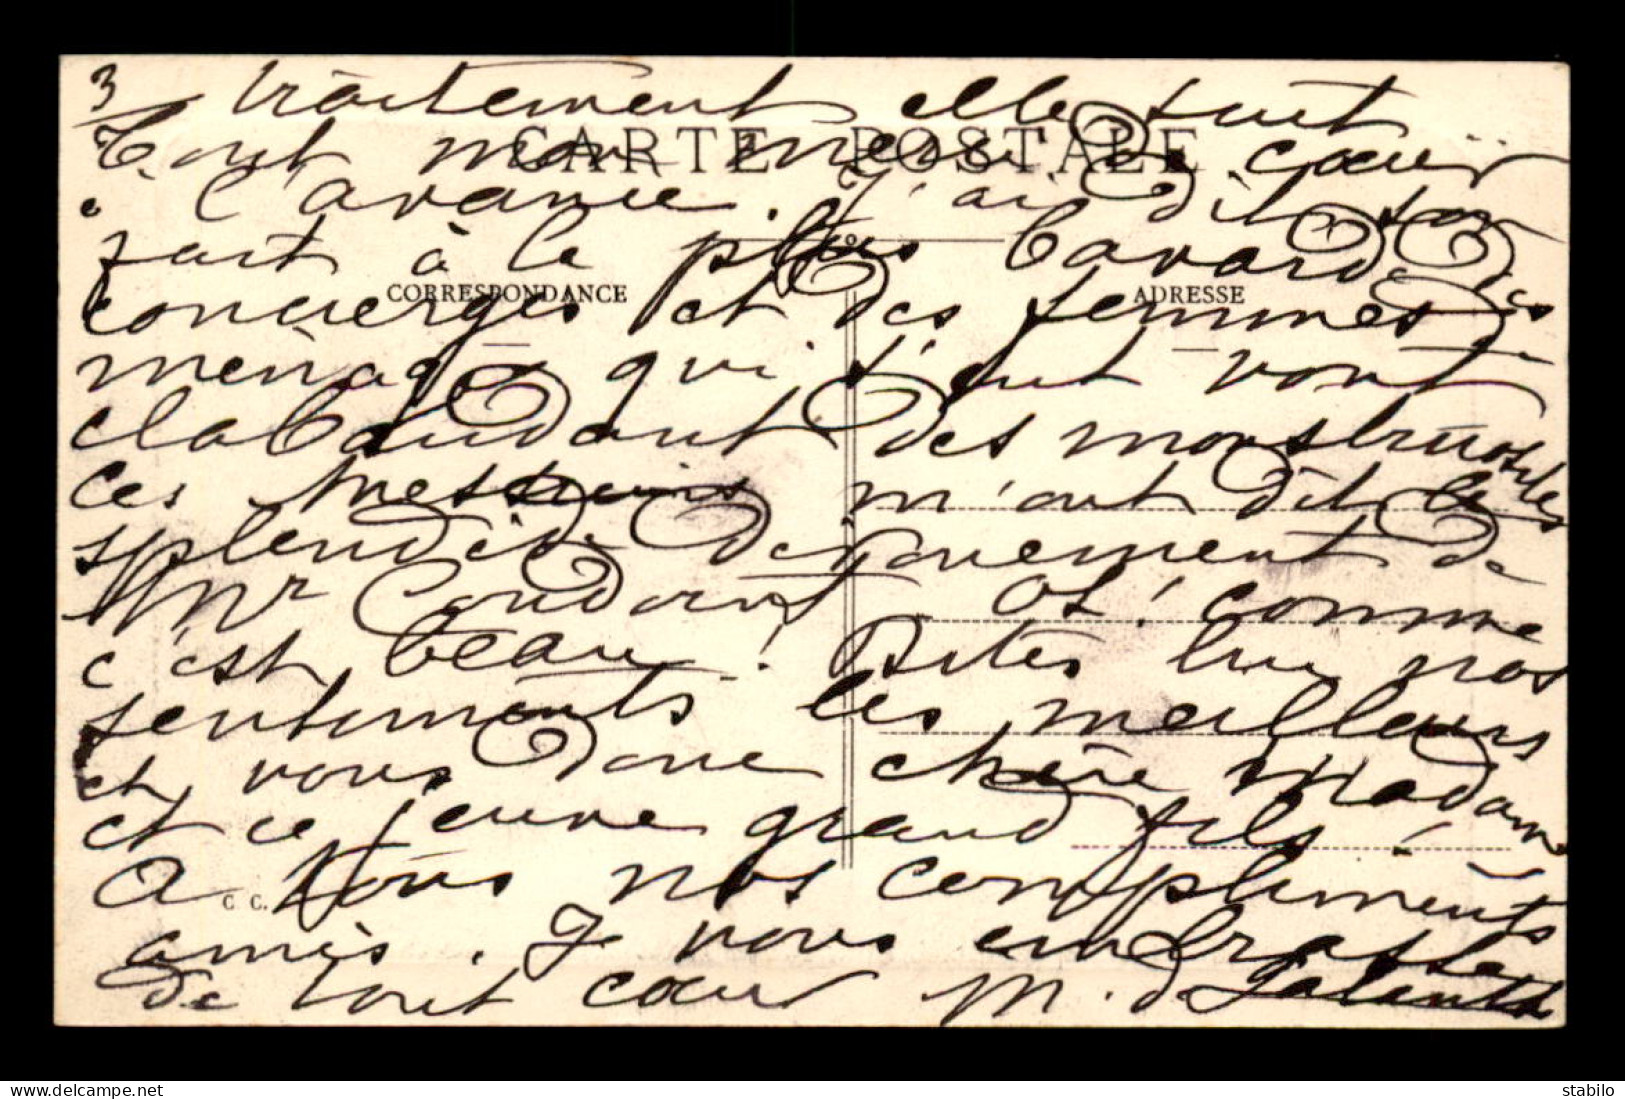 3
traitement elle suit
CARTE POSTALE
tout mon merci de cœur
à l'avance. J'ai dit son
fait à la plus bavarde des
CORRESPONDANCE
ADRESSE
concierges et des femmes de
ménage qui s'en vont
clabaudant des monstruosités
ces messieurs m'ont dit le
splendide dévouement de
Mr Coudert Oh! comme
c'est beau! Dites lui nos
sentiments les meilleurs
et vous donc chère Madame
et ce jeune grand fils!
A tous nos compliments
C C.
amis. Je vous embrasse
de tout cœur M. de
Delcampe.net
stabilo